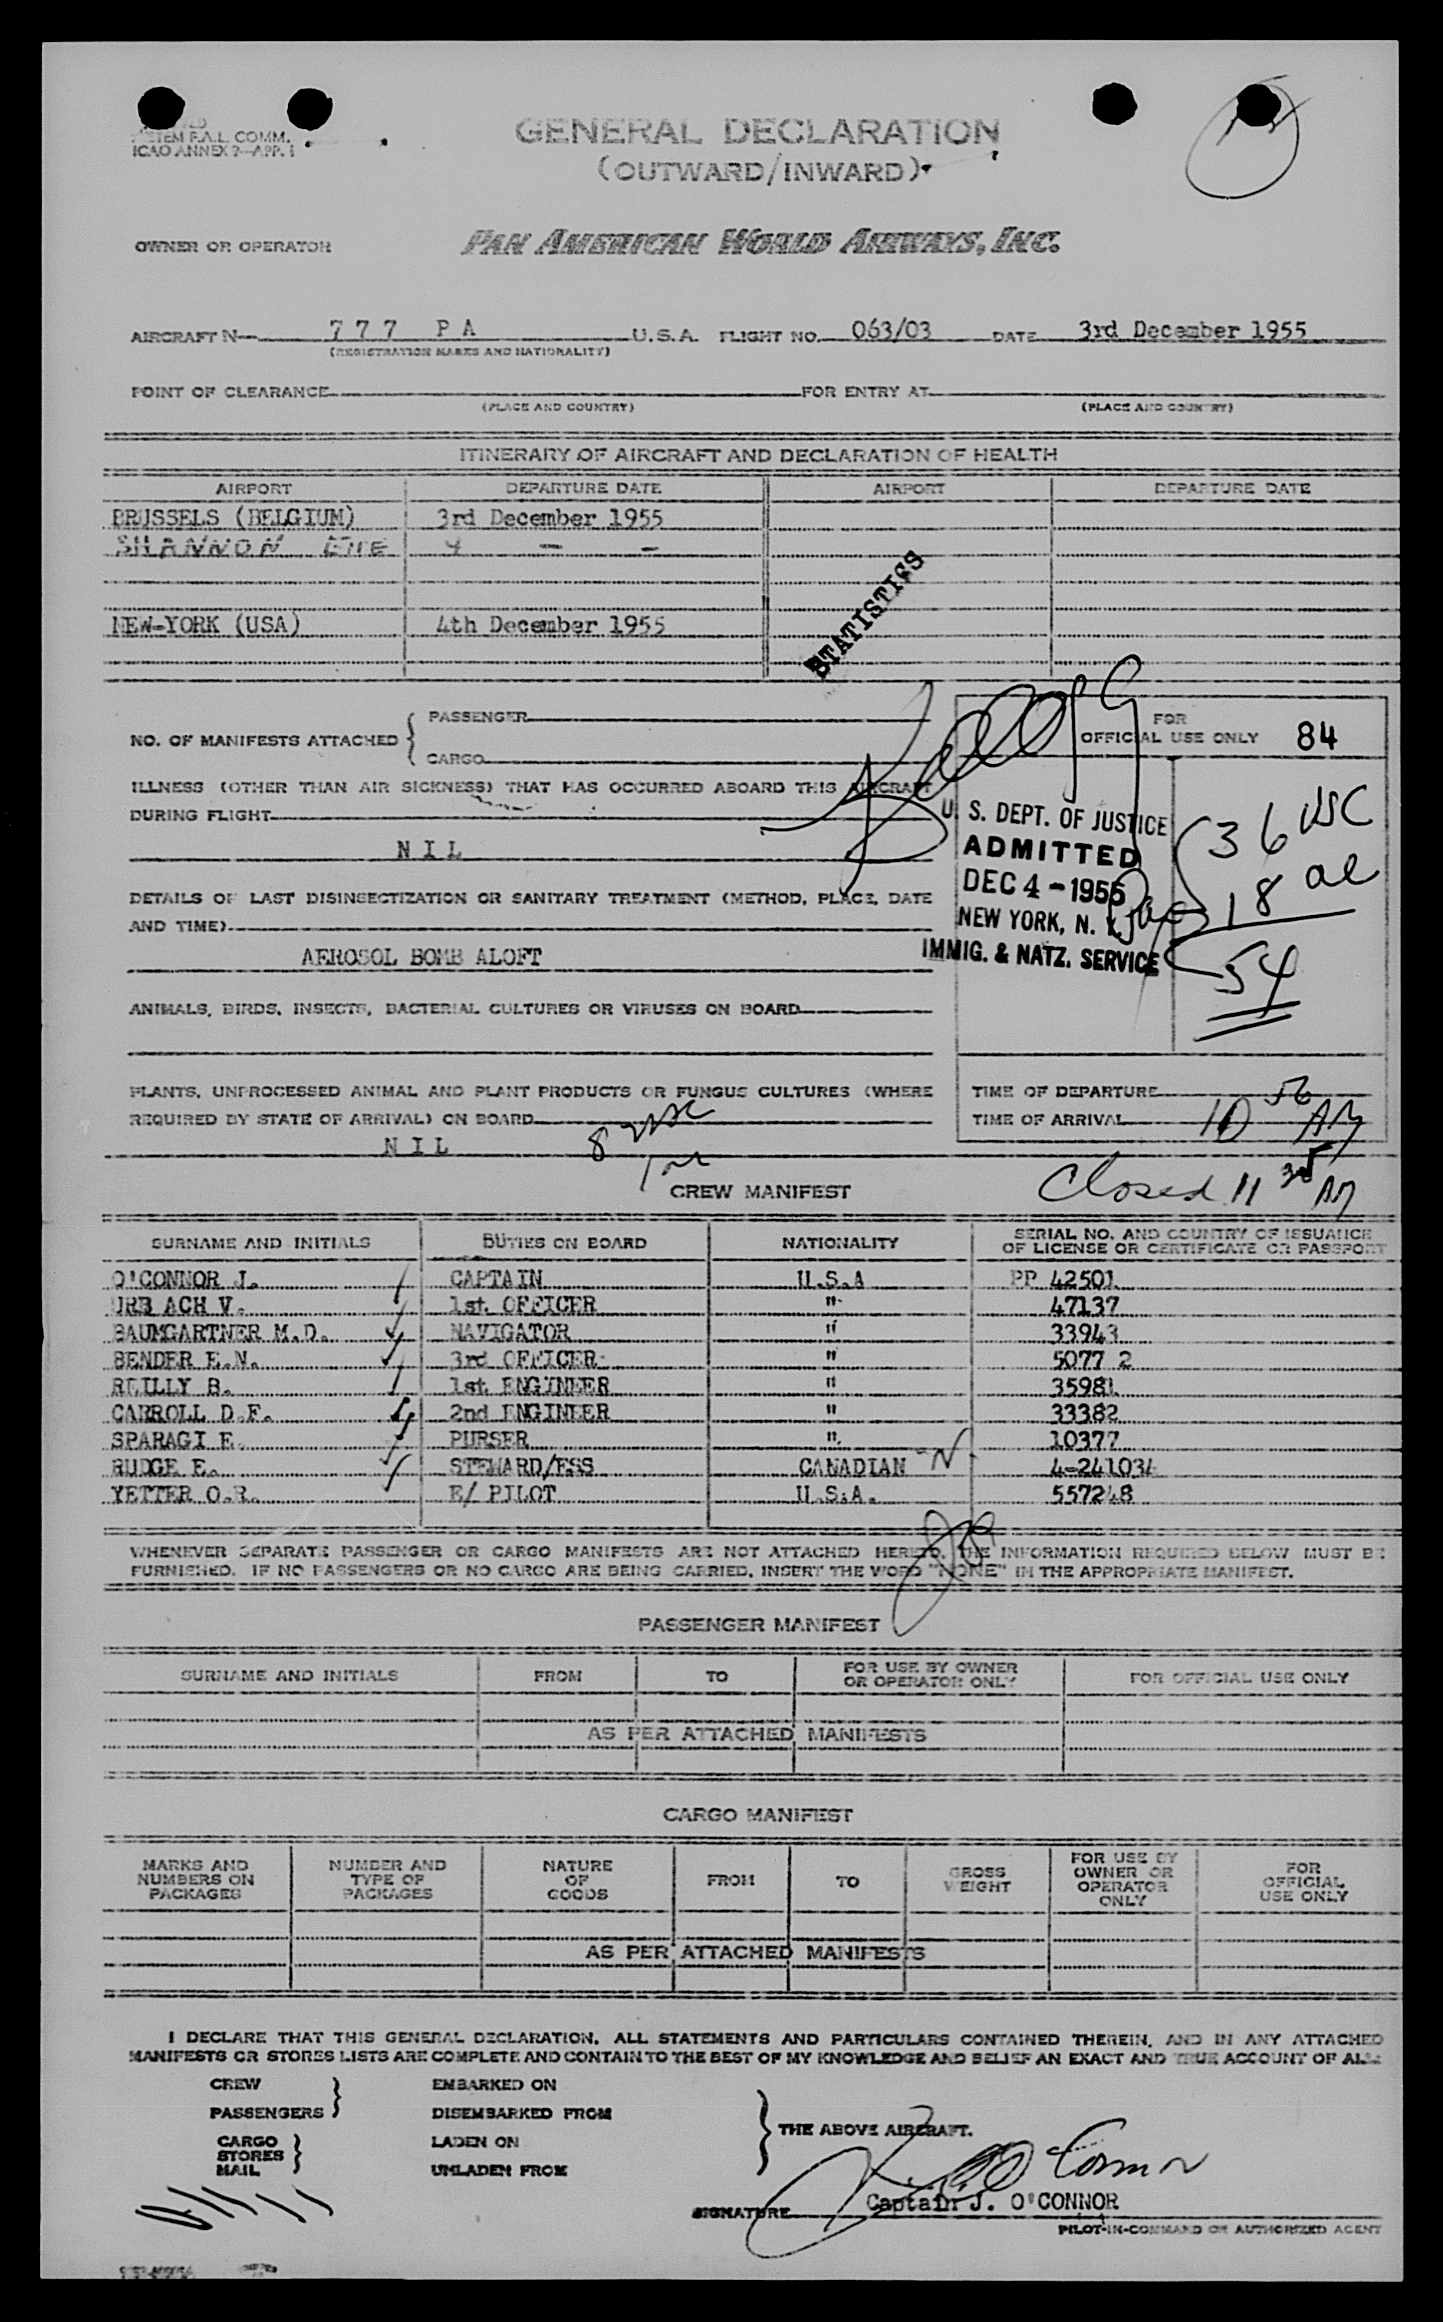 ICAO ANNEX 9—APP. 1
GENERAL DECLARATION
(OUTWARD/INWARD)
OWNER OR OPERATOR PAN AMERICAN WORLD AIRWAYS, INC.
AIRCRAFT N— 777 PA U.S.A. FLIGHT NO. 063/03 DATE 3rd December 1955
(REGISTRATION MARKS AND NATIONALITY)
POINT OF CLEARANCE FOR ENTRY AT
(PLACE AND COUNTRY) (PLACE AND COUNTRY)
ITINERARY OF AIRCRAFT AND DECLARATION OF HEALTH
AIRPORT DEPARTURE DATE AIRPORT DEPARTURE DATE
BRUSSELS (BELGIUM) 3rd December 1955
SHANNON EIRE 4 - -
NEW-YORK (USA) 4th December 1955
STATISTICS
NO. OF MANIFESTS ATTACHED { PASSENGER
CARGO
FOR
OFFICIAL USE ONLY 84
ILLNESS (OTHER THAN AIR SICKNESS) THAT HAS OCCURRED ABOARD THIS AIRCRAFT
DURING FLIGHT
NIL
U. S. DEPT. OF JUSTICE
ADMITTED
DEC 4 - 1955
NEW YORK, N. Y.
IMMIG. & NATZ. SERVICE
36 USC
18 al
54
DETAILS OF LAST DISINSECTIZATION OR SANITARY TREATMENT (METHOD, PLACE, DATE
AND TIME)
AEROSOL BOMB ALOFT
ANIMALS, BIRDS, INSECTS, BACTERIAL CULTURES OR VIRUSES ON BOARD
PLANTS, UNPROCESSED ANIMAL AND PLANT PRODUCTS OR FUNGUS CULTURES (WHERE
REQUIRED BY STATE OF ARRIVAL) ON BOARD
NIL
8 USC
1 al
TIME OF DEPARTURE
TIME OF ARRIVAL 10 56 AM
Closed 11 35 AM
CREW MANIFEST
SURNAME AND INITIALS DUTIES ON BOARD NATIONALITY SERIAL NO. AND COUNTRY OF ISSUANCE
OF LICENSE OR CERTIFICATE OR PASSPORT
O'CONNOR J. CAPTAIN U.S.A PP 42501
URB ACH V. 1st. OFFICER " 47137
BAUMGARTNER M.D. NAVIGATOR " 33943
BENDER E.N. 3rd OFFICER " 5077 2
REILLY B. 1st ENGINEER " 35981
CARROLL D.F. 2nd ENGINEER " 33382
SPARAGI E. PURSER " 10377
RUDGE E. STEWARD/ESS CANADIAN -N- 4-24103A
YETTER O.R. E/ PILOT U.S.A. 557248
WHENEVER SEPARATE PASSENGER OR CARGO MANIFESTS ARE NOT ATTACHED HERETO, THE INFORMATION REQUIRED BELOW MUST BE
FURNISHED. IF NO PASSENGERS OR NO CARGO ARE BEING CARRIED, INSERT THE WORD "NONE" IN THE APPROPRIATE MANIFEST.
PASSENGER MANIFEST
SURNAME AND INITIALS FROM TO FOR USE BY OWNER
OR OPERATOR ONLY FOR OFFICIAL USE ONLY
AS PER ATTACHED MANIFESTS
CARGO MANIFEST
MARKS AND
NUMBERS ON
PACKAGES
NUMBER AND
TYPE OF
PACKAGES
NATURE
OF
GOODS
FROM
TO
GROSS
WEIGHT
FOR USE BY
OWNER OR
OPERATOR
ONLY
FOR
OFFICIAL
USE ONLY
AS PER ATTACHED MANIFESTS
I DECLARE THAT THIS GENERAL DECLARATION, ALL STATEMENTS AND PARTICULARS CONTAINED THEREIN, AND IN ANY ATTACHED
MANIFESTS OR STORES LISTS ARE COMPLETE AND CONTAIN TO THE BEST OF MY KNOWLEDGE AND BELIEF AN EXACT AND TRUE ACCOUNT OF ALL:
CREW EMBARKED ON
PASSENGERS DISEMBARKED FROM
THE ABOVE AIRCRAFT.
CARGO LADEN ON
STORES
MAIL UNLADEN FROM
SIGNATURE Captain J. O'CONNOR
PILOT-IN-COMMAND OR AUTHORIZED AGENT